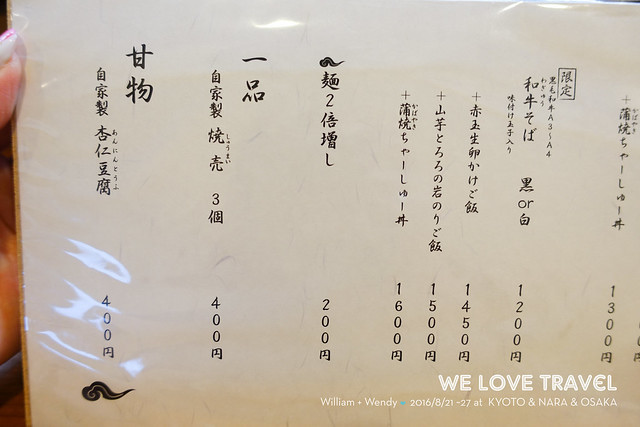 ＋蒲焼ちゃーしゅー丼 1300円
かばやき
限定
黒毛和牛A3〜A4
和牛そば 黒or白 1200円
わぎゅう
味付け玉子入り
＋赤玉生卵かけご飯 1450円
＋山芋とろろの岩のりご飯 1500円
＋蒲焼ちゃーしゅー丼 1600円
かばやき
麺2倍増し 200円
一品
自家製 焼売 3個 400円
しゅうまい
甘物
自家製 杏仁豆腐 400円
あんにんとうふ
WE LOVE TRAVEL
William + Wendy ● 2016/8/21 ~27 at KYOTO & NARA & OSAKA